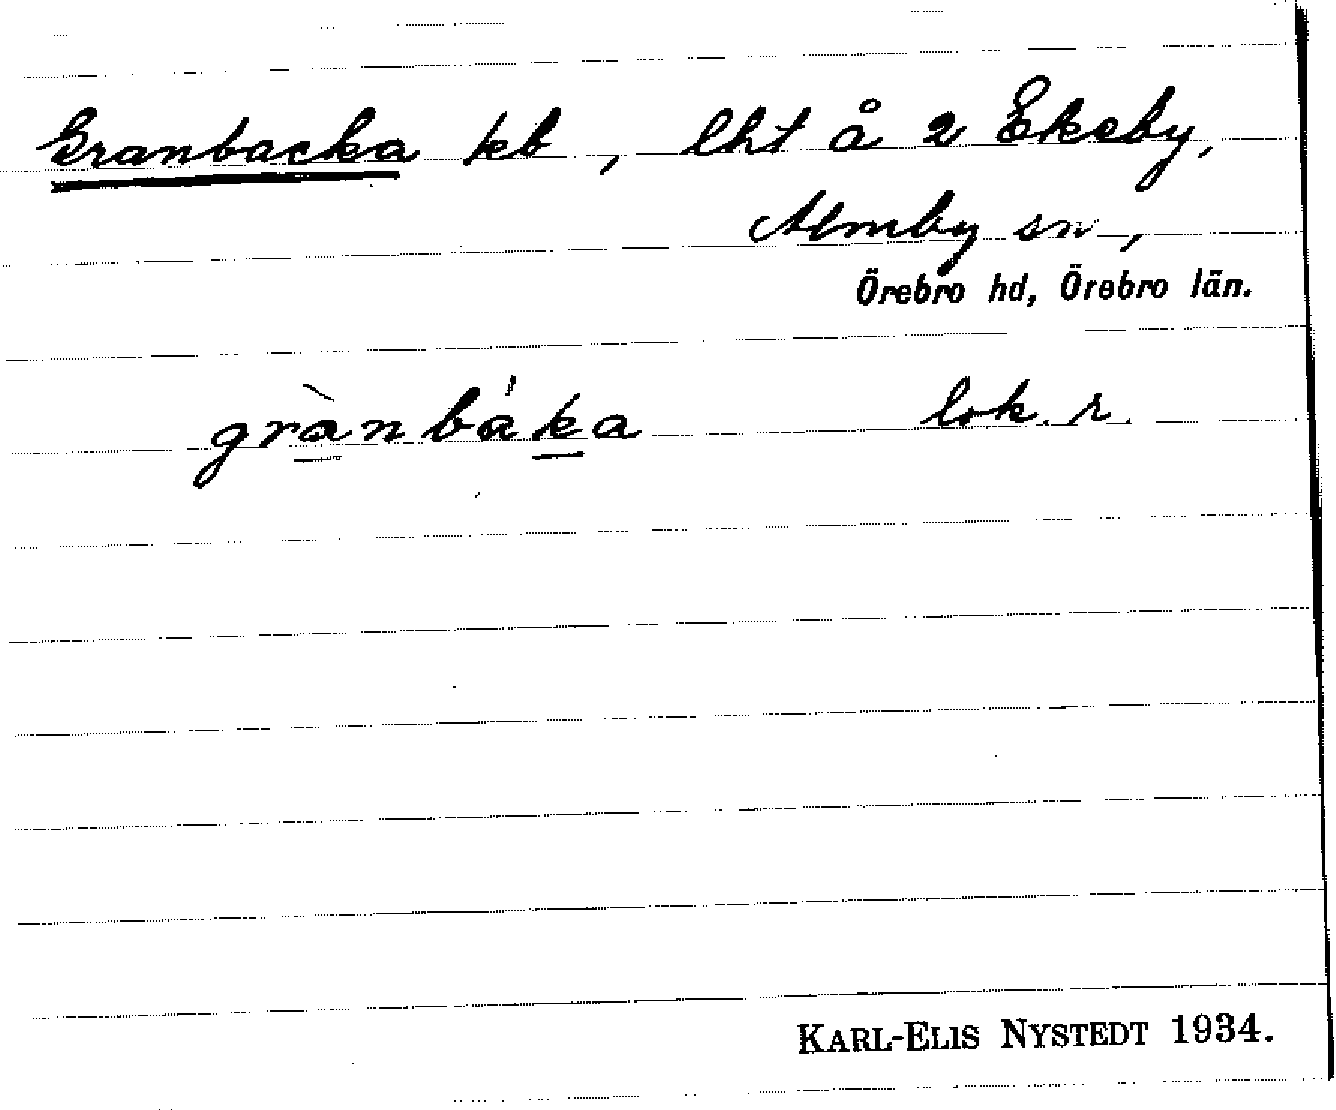 Granbacka kb, lht å 2 Ekeby,
Almby sn,
Örebro hd, Örebro län.
grànbáka lok. r.
KARL-ELIS NYSTEDT 1934.